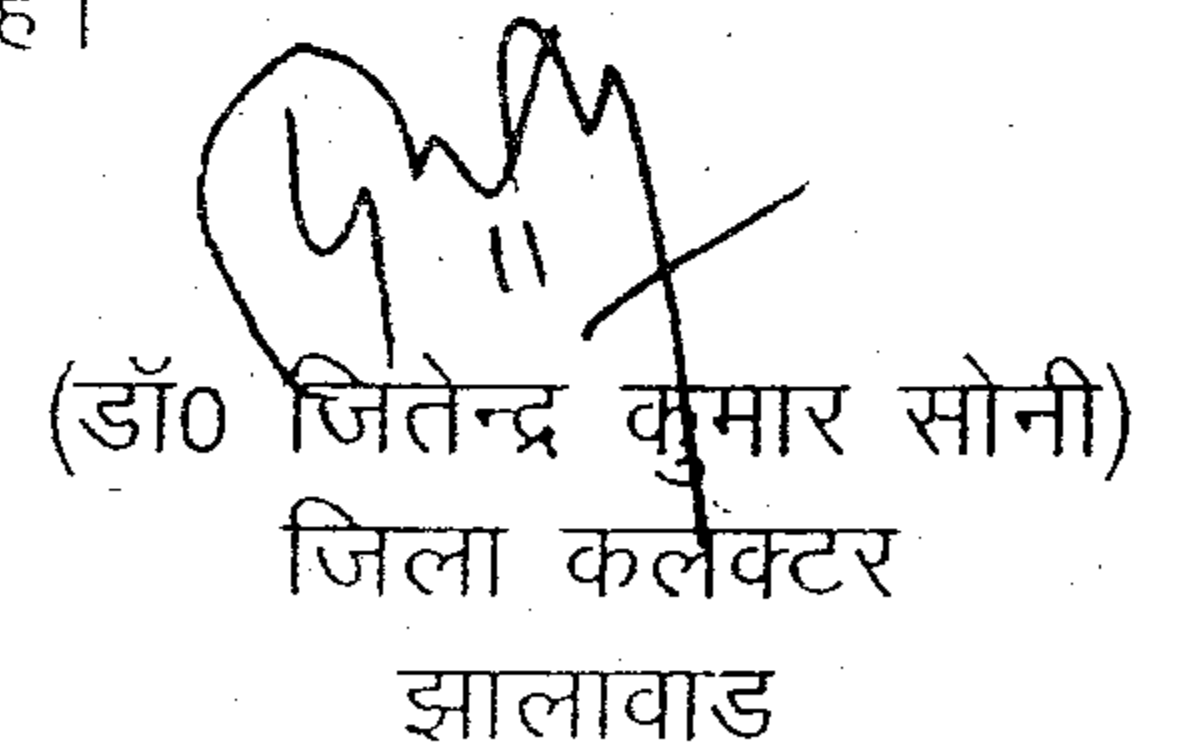 है।
(डॉ0 जितेन्द्र कुमार सोनी)
जिला कलेक्टर
झालावाड